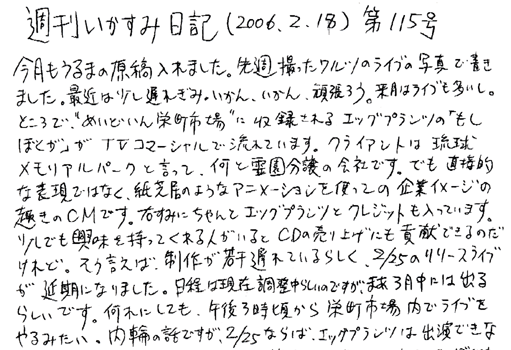 週刊いかすみ日記(2006.2.18) 第115号
今月もうるまの原稿入れました。先週撮ったクルツのライブの写真で書き
ました。最近は少し遅れぎみ。いかん、いかん、頑張ろう。来月はライブも多いし。
ところで、"めいどいん栄町市場"に収録されるエッグプランツの「もし
ぼとが」がTVコマーシャルで流れています。クライアントは琉球
メモリアルパークと言って、何と霊園分譲の会社です。でも直接的
な表現ではなく、紙芝居のようなアニメーションを使っての企業イメージの
趣きのCMです。右すみにちゃんとエッグプランツとクレジットも入っています。
少しでも興味を持ってくれる人がいるとCDの売り上げにも貢献できるのだ
けれど。そう言えば、制作が若干遅れているらしく、2/25のリリースライブ
が延期になりました。日程は現在調整中らしいのですが、3月中には出る
らしいです。何れにしても、午後3時頃から栄町市場内でライブを
やるみたい。内輪の話ですが、2/25ならば、エッグプランツは出演できな